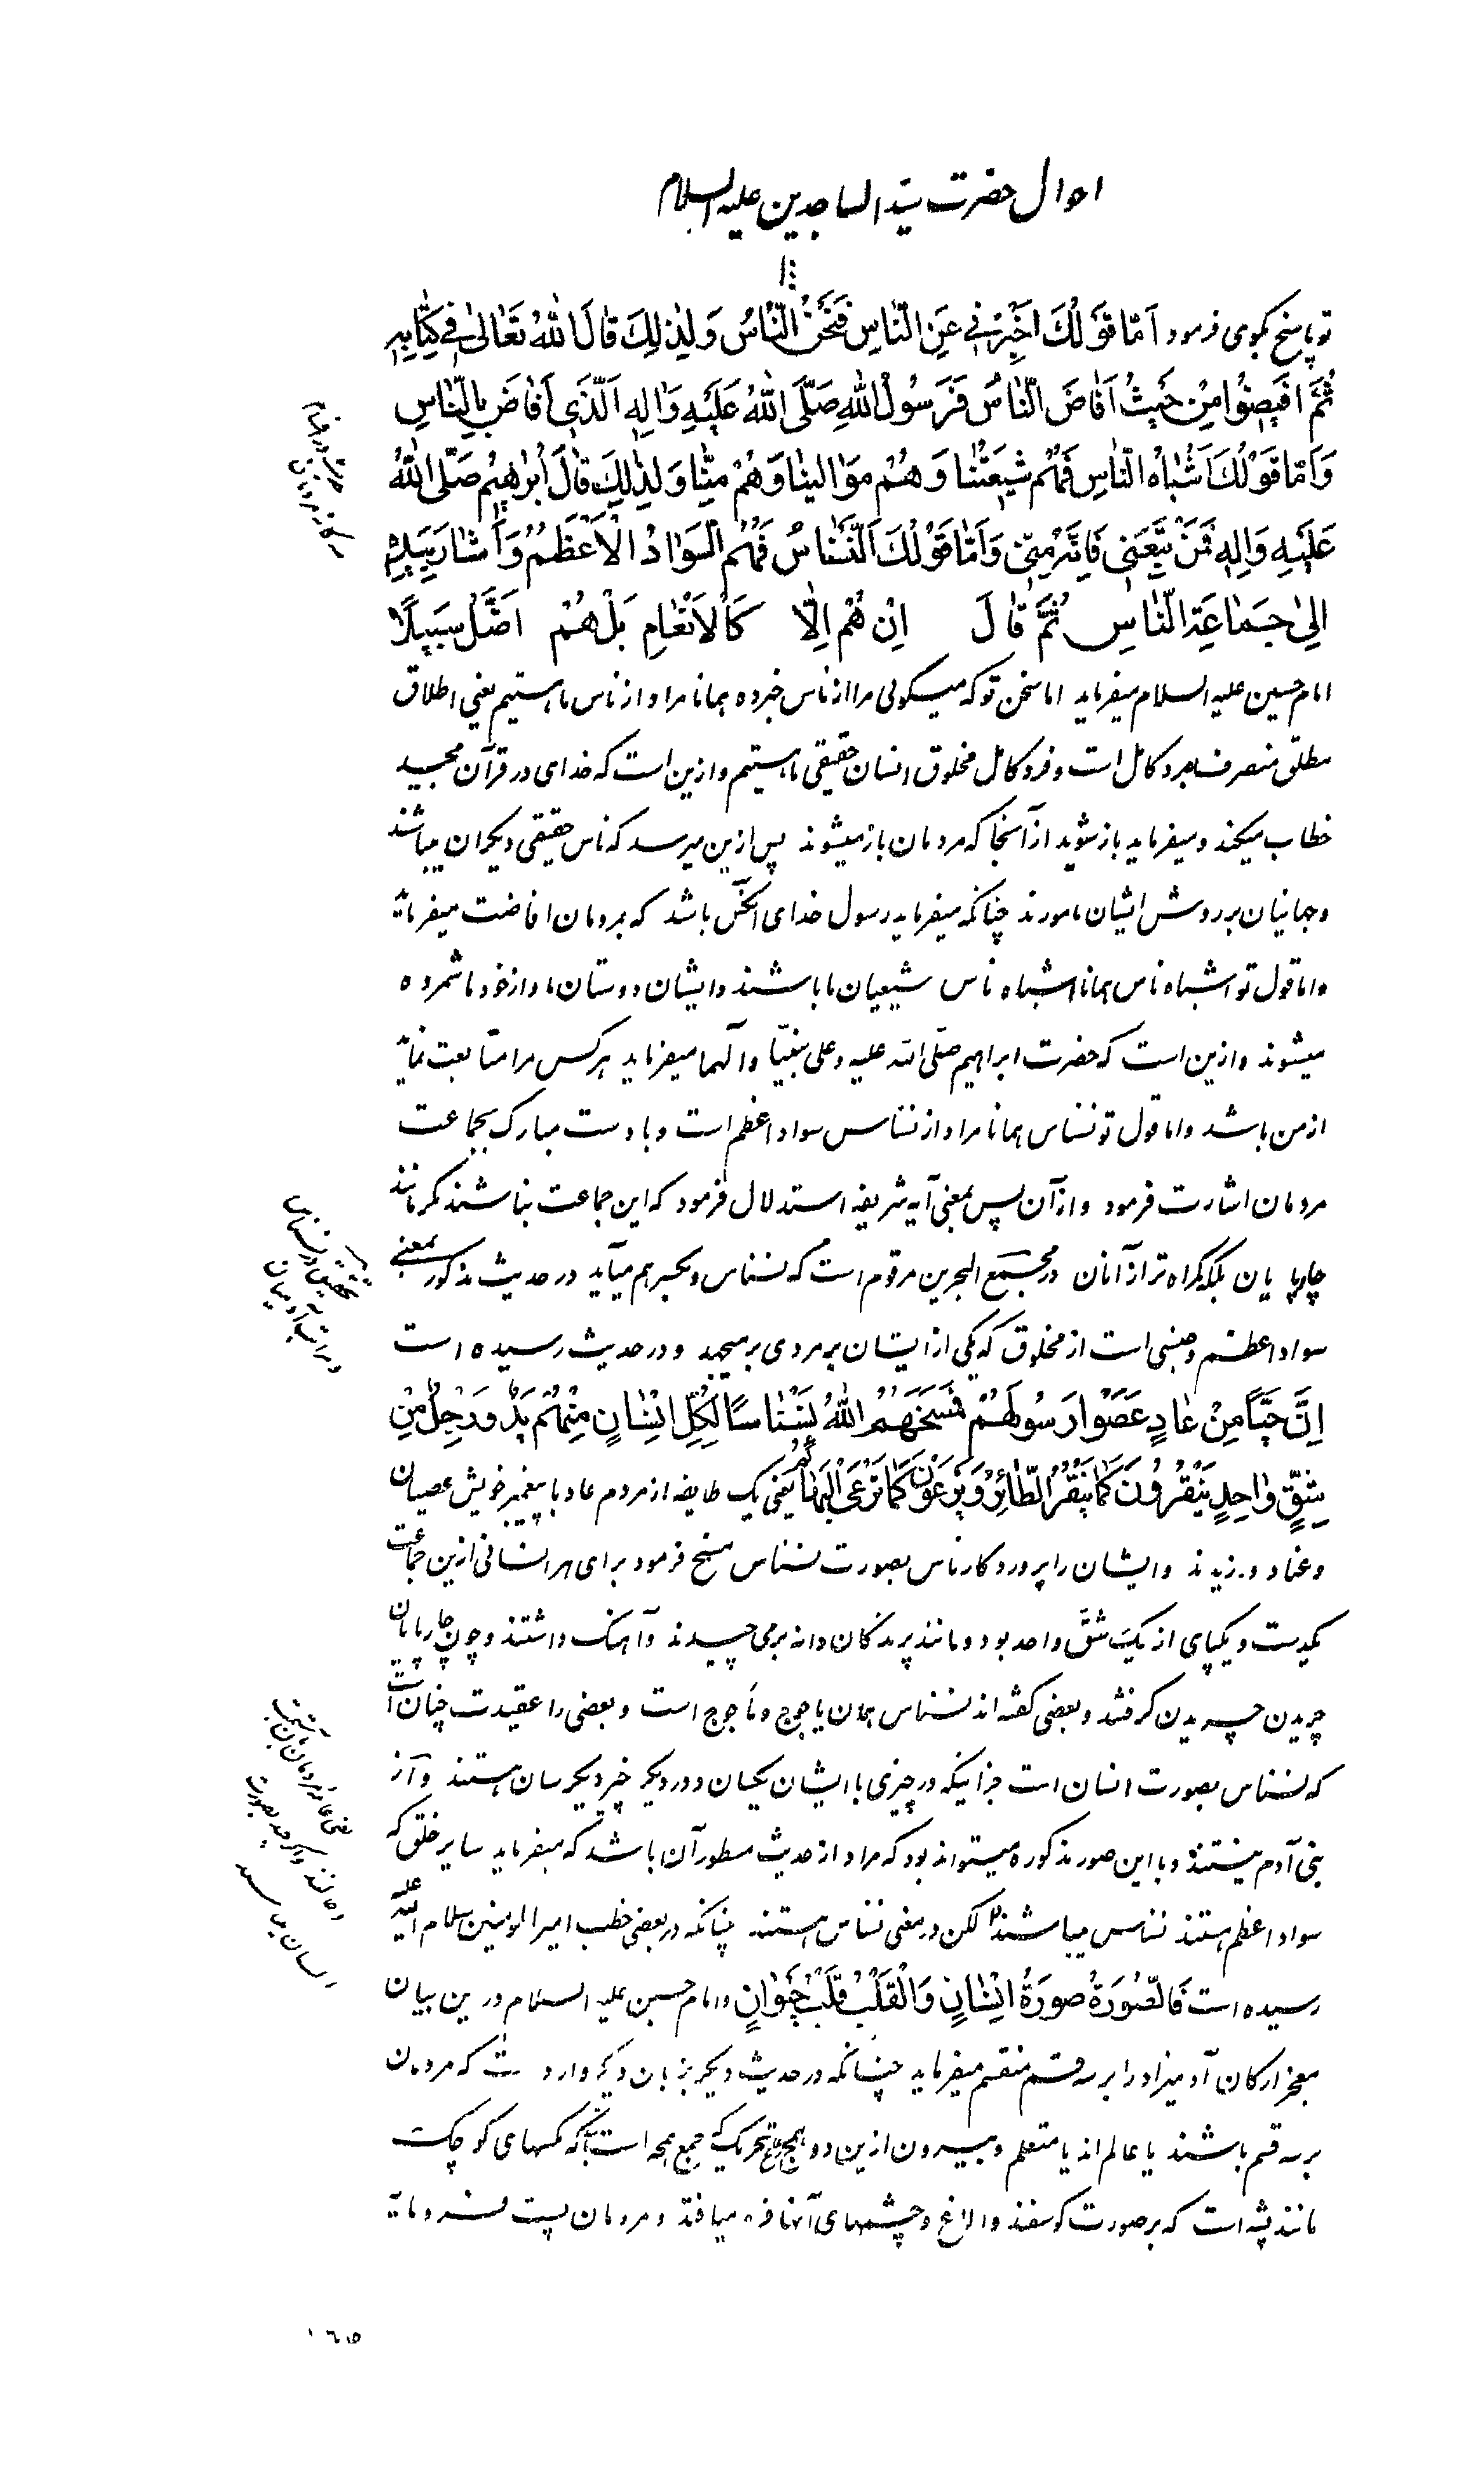 احوال حضرت سیّد الساجدین علیه السلام
تو پاسخ بگوی فرمود اَمّا قَوْلُكَ اَخْبِرْنی عَنِ النّاسِ فَنَحْنُ النّاسُ وَلِذٰلِكَ قالَ اللّٰهُ تَعالىٰ فی كِتابِهِ
ثُمَّ اَفیضُوا مِنْ حَیْثُ اَفاضَ النّاسُ فَرَسُولُ اللّٰهِ صَلَّى اللّٰهُ عَلَیْهِ وَاٰلِهِ اَلَّذی اَفاضَ بِالنّاسِ
وَاَمّا قَوْلُكَ اَشْباهُ النّاسِ فَهُمْ شیعَتُنا وَهُمْ مَوالینا وَهُمْ مِنّا وَلِذٰلِكَ قالَ اِبْرٰهیمُ صَلَّى اللّٰهُ
عَلَیْهِ وَاٰلِهِ فَمَنْ تَبِعَنی فَاِنَّهُ مِنّی وَاَمّا قَوْلُكَ النَّسْناسُ فَهُمُ السَّوادُ الْاَعْظَمُ وَاَشارَ بِیَدِهِ
اِلىٰ جَماعَةِ النّاسِ ثُمَّ قالَ اِنْ هُمْ اِلّا كَالْاَنْعامِ بَلْ هُمْ اَضَلُّ سَبیلًا
امام حسین علیه السلام میفرماید اما سخن تو که میگوئی مرا از ناس خبر ده همانا مراد از ناس ما هستیم یعنی اطلاق
مطلق منصرف بفرد کامل است و فرد کامل مخلوق انسان حقیقی ما هستیم و ازین است که خدای در قرآن مجید
خطاب میکند و میفرماید باز شوید از آنجا که مردمان باز میشوند پس ازین میرسد که ناس حقیقی دیگران میباشند
و جهانیان بر روش ایشان مامورند چنانکه میفرماید رسول خدای آنکس باشد که بمردمان افاضت میفرماید
و اما قول تو اشباه ناس همانا اشباه ناس شیعیان ما باشند و ایشان دوستان ما و از خود ما شمرده
میشوند و ازین است که حضرت ابراهیم صلّی الله علیه و علی نبیّنا و آلهما میفرماید هر کس مرا متابعت نماید
از من باشد و اما قول تو نسناس همانا مراد از نسناس سواد اعظم است و با دست مبارک بجماعت
مردمان اشارت فرمود و از آن پس بمعنی آیه شریفه استدلال فرمود که این جماعت نباشند مگر مانند
چارپایان بلکه گمراه تر از آنان در مجمع البحرین مرقوم است که نسناس و بکسر هم میآید در حدیث مذکور بمعنی
سواد اعظم و جنسی است از مخلوق که یکی از ایشان بر مردی برمیجهد و در حدیث رسیده است
اِنَّ حَیًّا مِنْ عادٍ عَصَوْا رَسُولَهُمْ فَمَسَخَهُمُ اللّٰهُ نَسْناسًا لِكُلِّ اِنْسانٍ مِنْهُمْ یَدٌ وَرِجْلٌ مِنْ
شِقٍّ واحِدٍ یَنْقُرُونَ كَما یَنْقُرُ الطّائِرُ وَیَرْعَوْنَ كَما تَرْعَى الْبَهائِمُ یعنی یک طایفه از مردم عاد با پیغمبر خویش عصیان
و عناد ورزیدند و ایشان را پروردگار ناس بصورت نسناس مسخ فرمود برای هر انسانی ازین جماعت
یکدست و یکپای از یک شقّ واحد بود و مانند پرندگان دانه برمی چیدند و آهنگ داشتند و چون چارپایان
چریدن گرفتند و بعضی گفته اند نسناس همان یاجوج و مأجوج است و بعضی را عقیدت چنان است
که نسناس بصورت انسان است جز اینکه در چیزی با ایشان یکسان و در دیگر چیز دیگر سان هستند و از
بنی آدم نیستند و با این صور مذکوره میتواند بود که مراد از حدیث مسطور آن باشد که میفرماید سایر خلق که
سواد اعظم هستند نسناس میباشند لکن در معنی نسناس هستند چنانکه در بعضی خطب امیر المومنین سلام الله علیه
رسیده است فَالصُّورَةُ صُورَةُ اِنْسانٍ وَالْقَلْبُ قَلْبُ حَیَوانٍ و امام حسین علیه السلام درین بیان
معجز ارکان آدمیزاد را بر سه قسم منقسم میفرماید چنانکه در حدیث دیگر بزبان دیگر وارد است که مردمان
بر سه قسم باشند یا عالم اند یا متعلم و بیرون ازین دو همج رعاع بتحریک جمع همجه است که مگسهای کوچک
مانند پشه است که بر صورت گوسفند و الاغ و چشمهای آنها فرو میافتد و مردمان پست فرومایه
۱۶۵